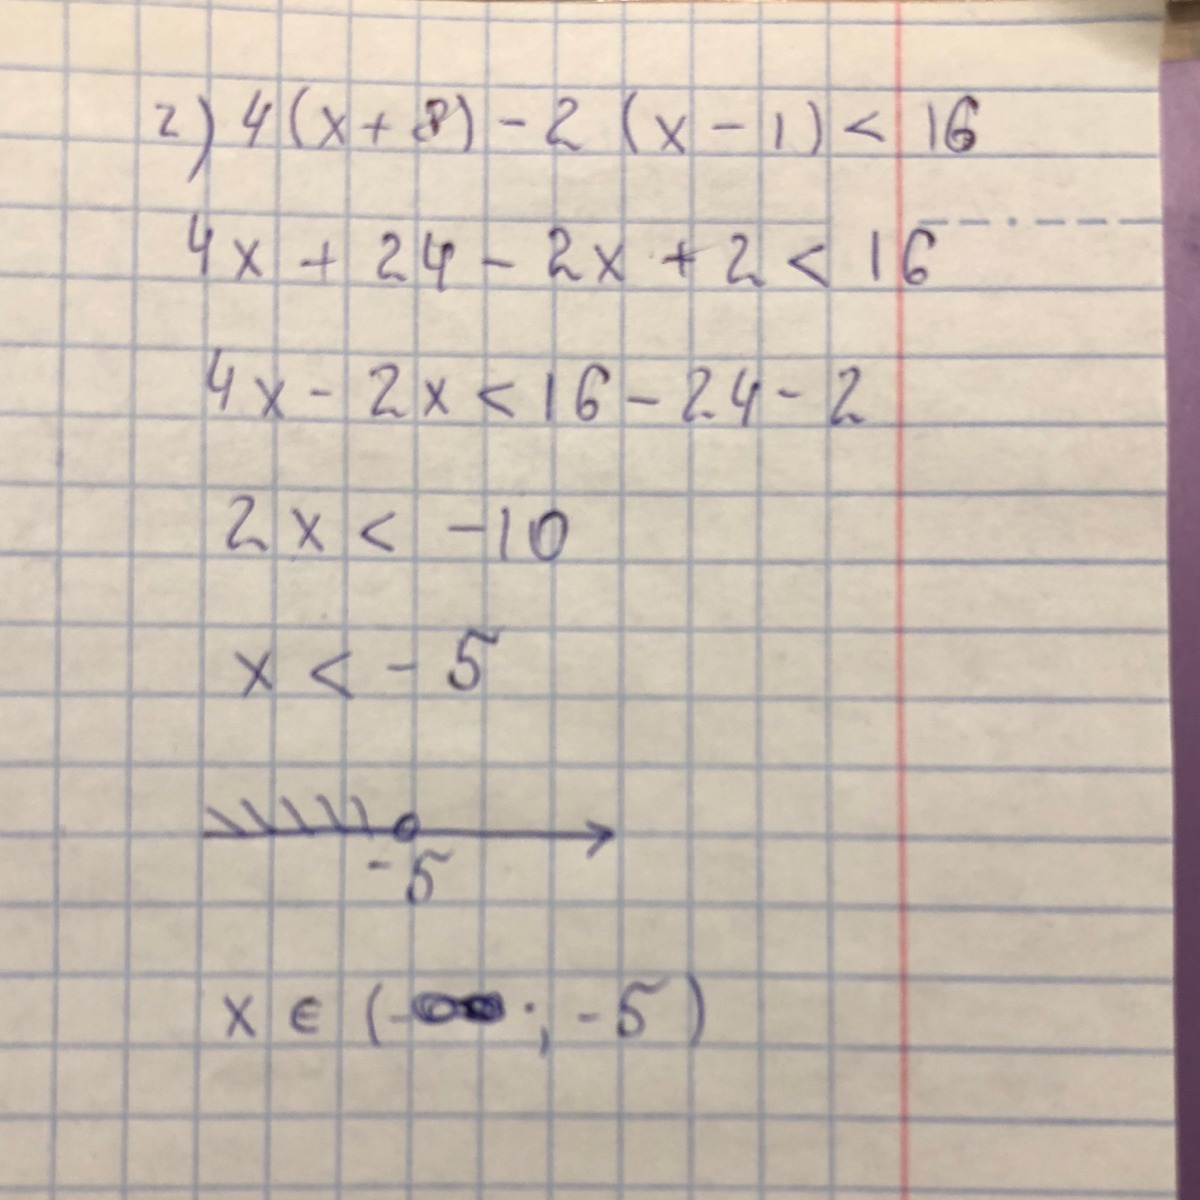 2) 4(x+8)-2(x-1)<16
4x+24-2x+2<16
4x-2x<16-24-2
2x<-10
x<-5
-5
x∈(-∞;-5)